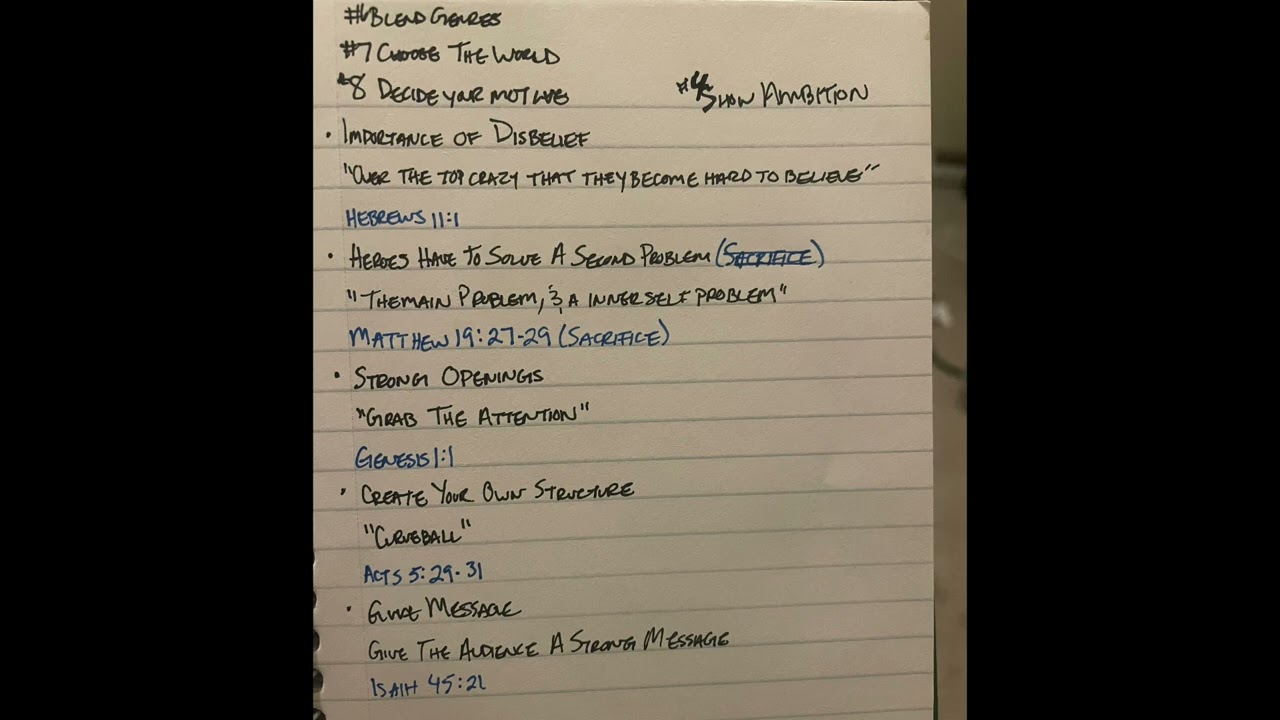 #6 BLEND GENRES
#7 CHOOSE THE WORLD
#8 DECIDE YOUR MOTIVES
#4 SHOW AMBITION
• IMPORTANCE OF DISBELIEF
"OVER THE TOP CRAZY THAT THEY BECOME HARD TO BELIEVE"
HEBREWS 11:1
• HEROES HAVE TO SOLVE A SECOND PROBLEM (SACRIFICE)
"THE MAIN PROBLEM, & A INNER SELF PROBLEM"
MATTHEW 19:27-29 (SACRIFICE)
• STRONG OPENINGS
"GRAB THE ATTENTION"
GENESIS 1:1
• CREATE YOUR OWN STRUCTURE
"CURVEBALL"
ACTS 5:29-31
• MESSAGE
GIVE THE AUDIENCE A STRONG MESSAGE
ISAIH 45:21